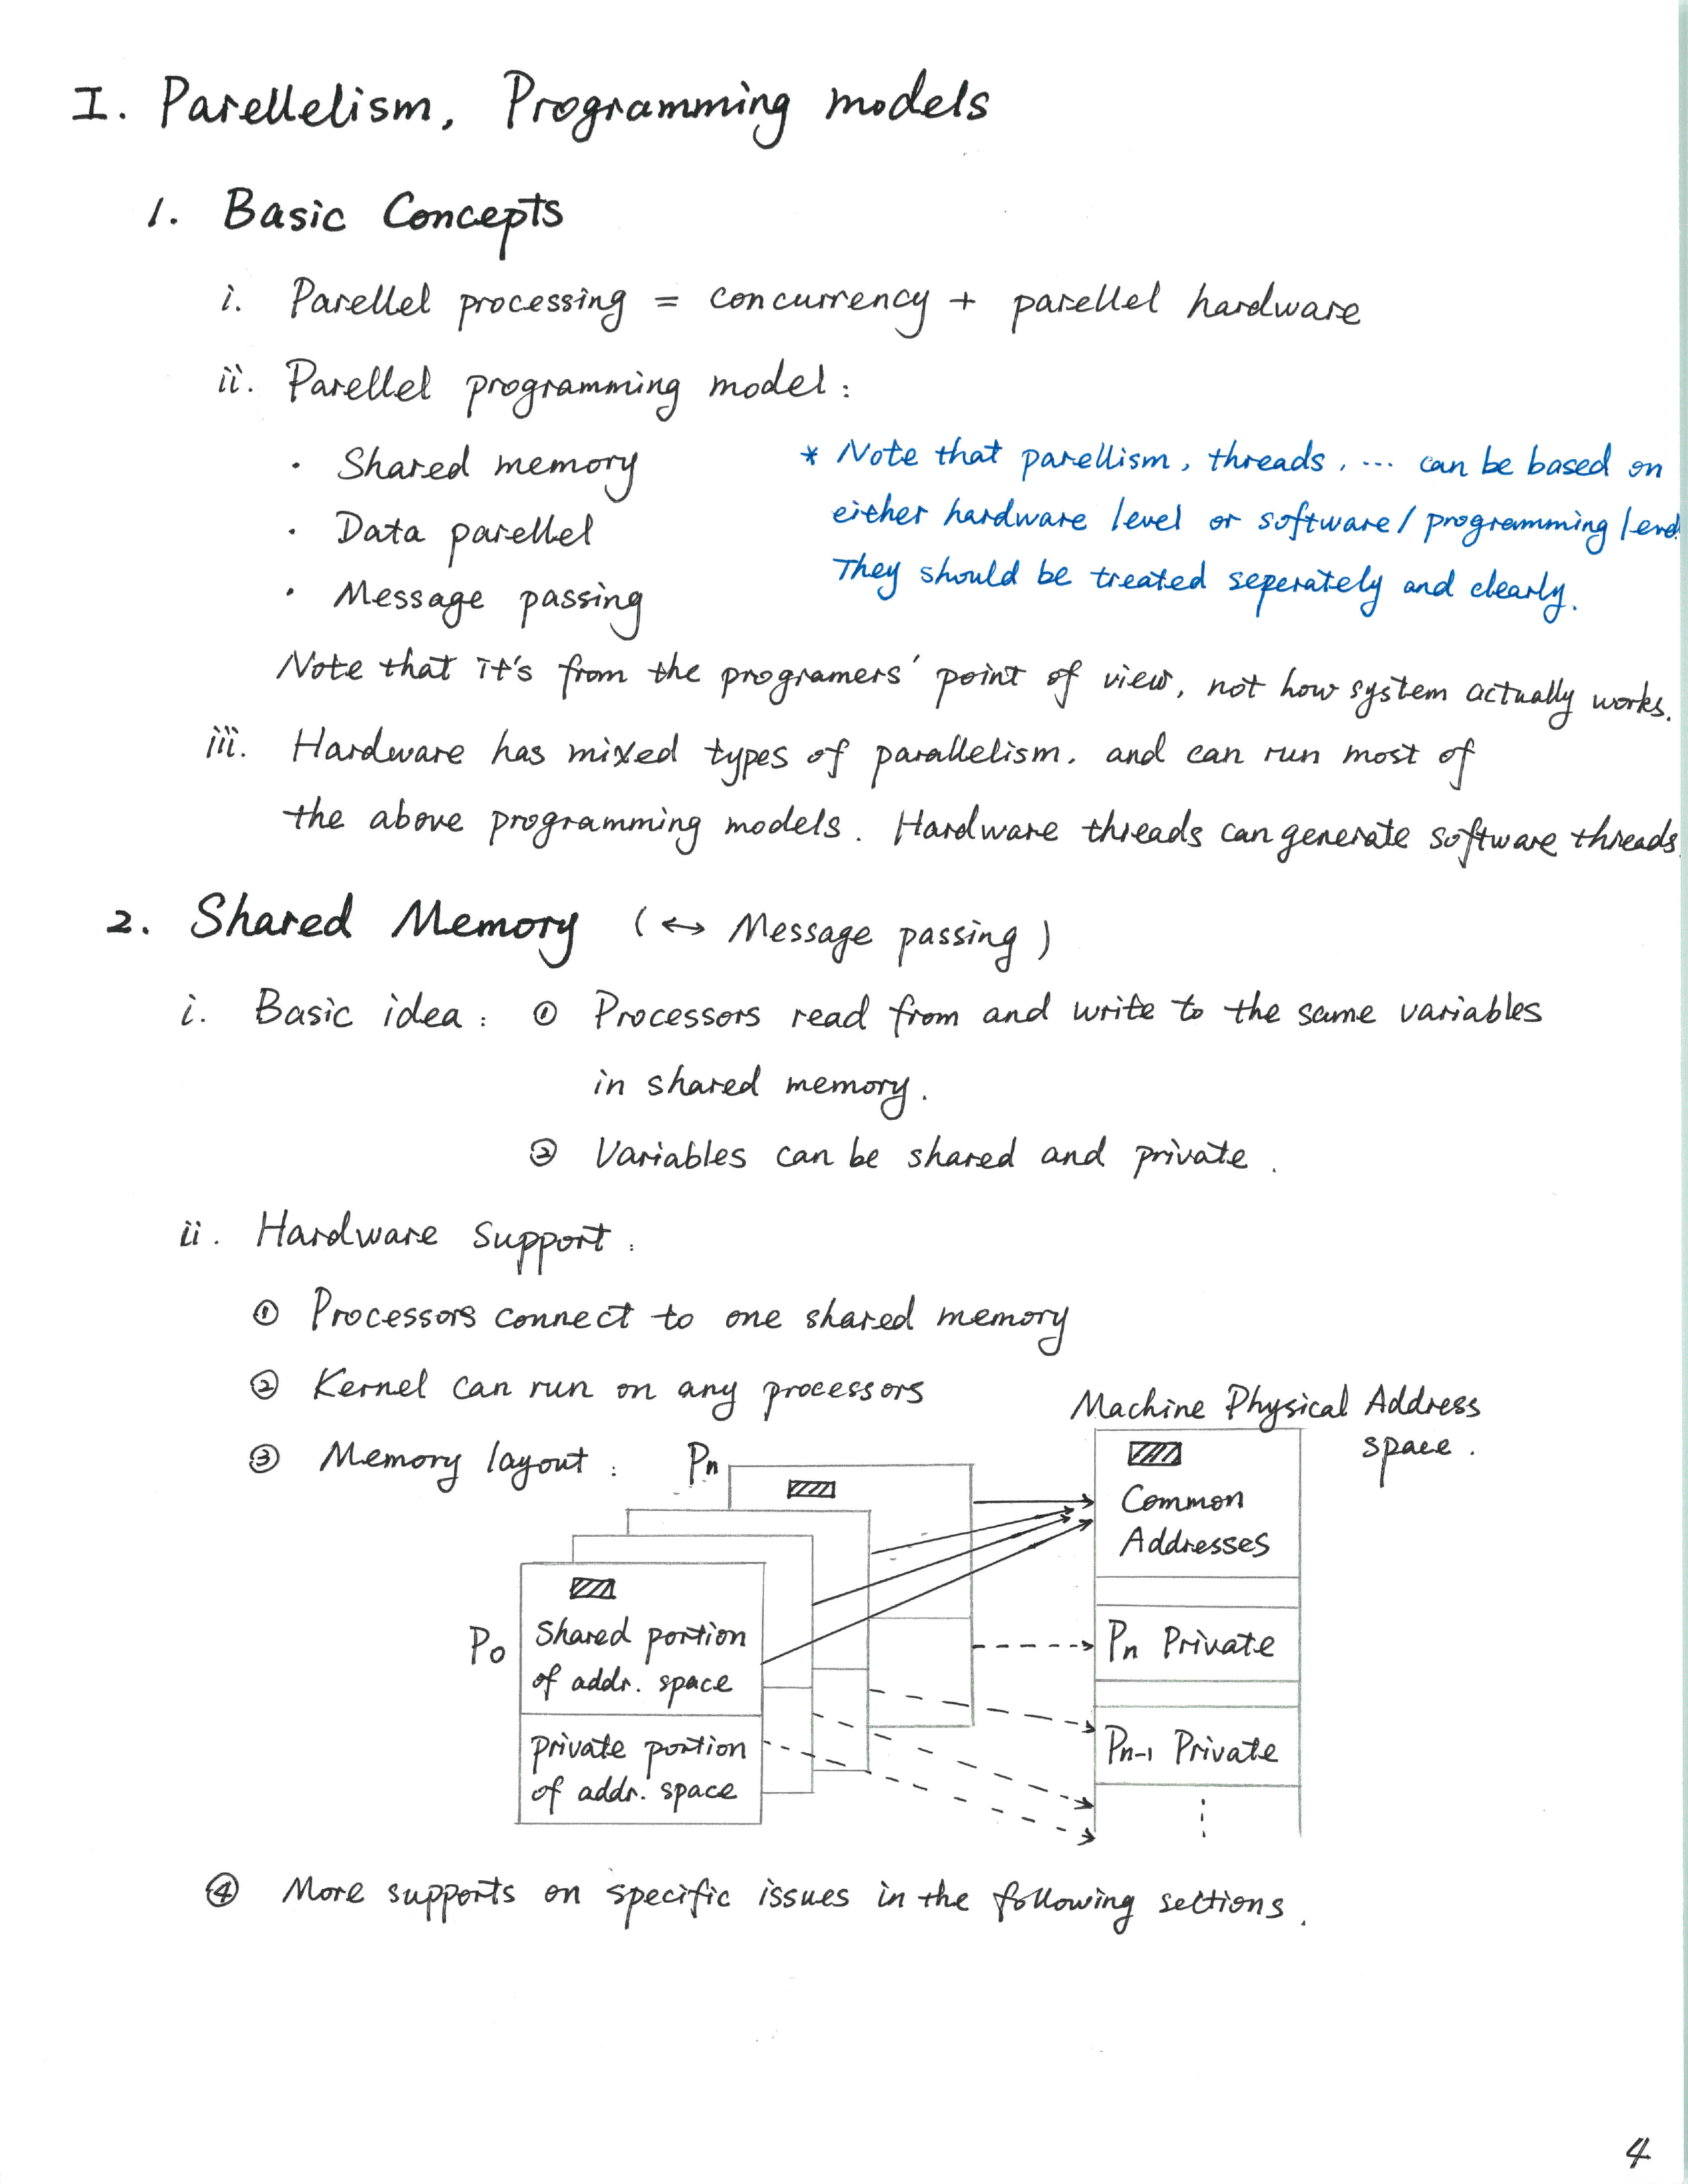 I. Parellelism, Programming models
1. Basic Concepts
i. Parellel processing = concurrency + parellel hardware
ii. Parellel programming model:
· Shared memory
· Data parellel
· Message passing
* Note that parellism, threads, ... can be based on
either hardware level or software/programming level.
They should be treated seperately and clearly.
Note that it's from the programers' point of view, not how system actually works.
iii. Hardware has mixed types of parallelism. and can run most of
the above programming models. Hardware threads can generate software threads.
2. Shared Memory (↔ Message passing)
i. Basic idea: ① Processors read from and write to the same variables
in shared memory.
② Variables can be shared and private.
ii. Hardware support:
① Processors connect to one shared memory
② Kernel can run on any processors
③ Memory layout:
Machine Physical Address
space.
Pn
Common
Addresses
P0
Shared portion
of addr. space
private portion
of addr. space
Pn Private
Pn-1 Private
⋮
④ More supports on specific issues in the following sections.
4